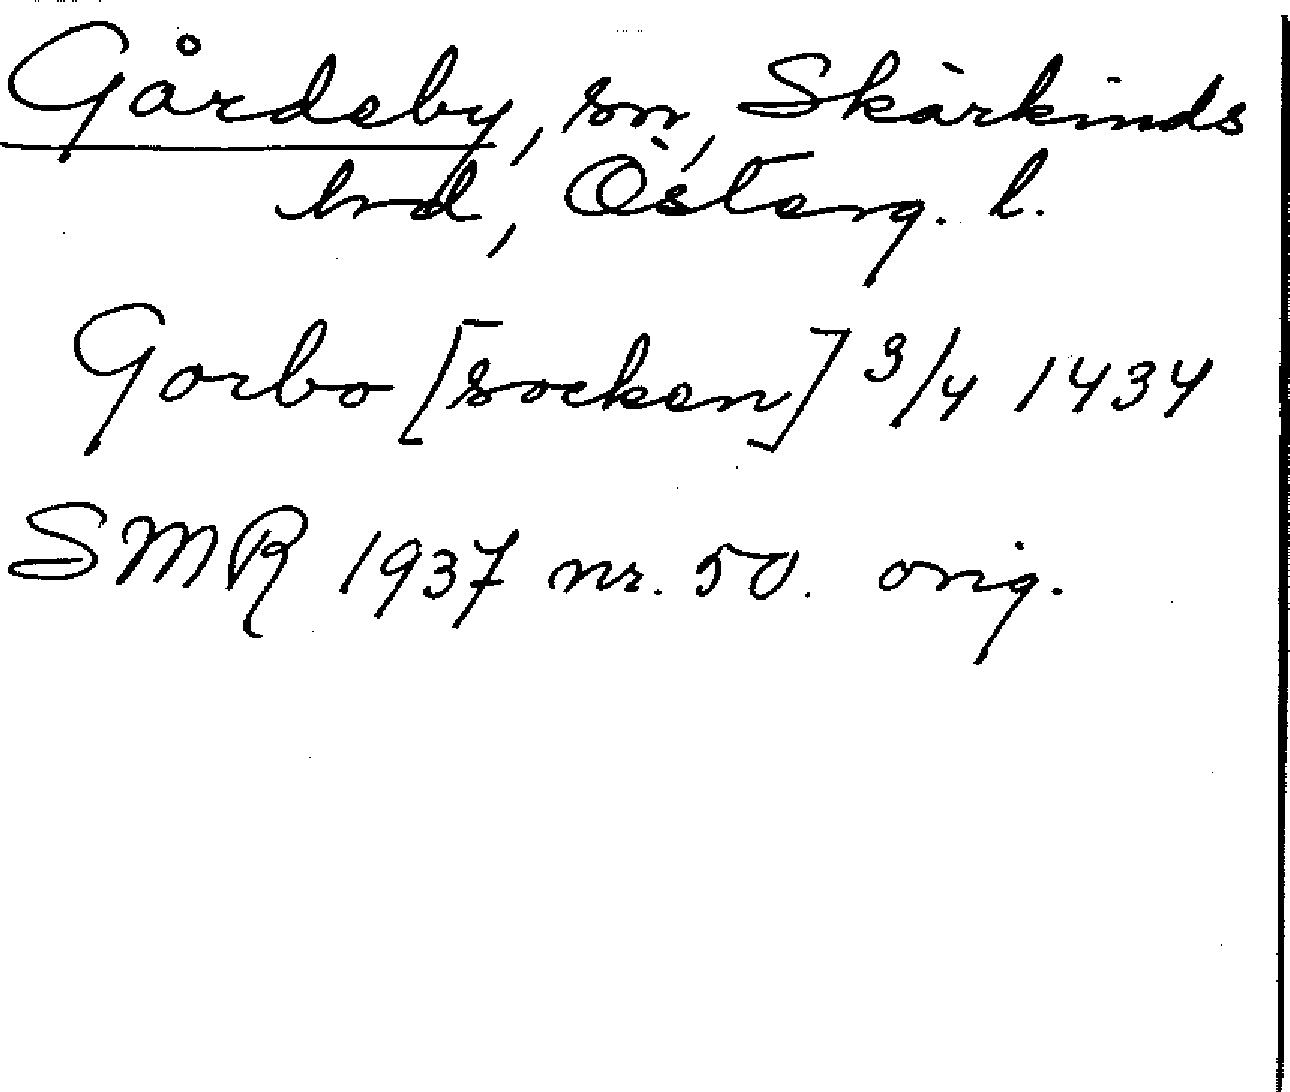 Gårdeby, sn, Skärkinds
hrd, Österg. l.
Gorbo [socken] 3/4 1434
SMR 1937 nr. 50. orig.